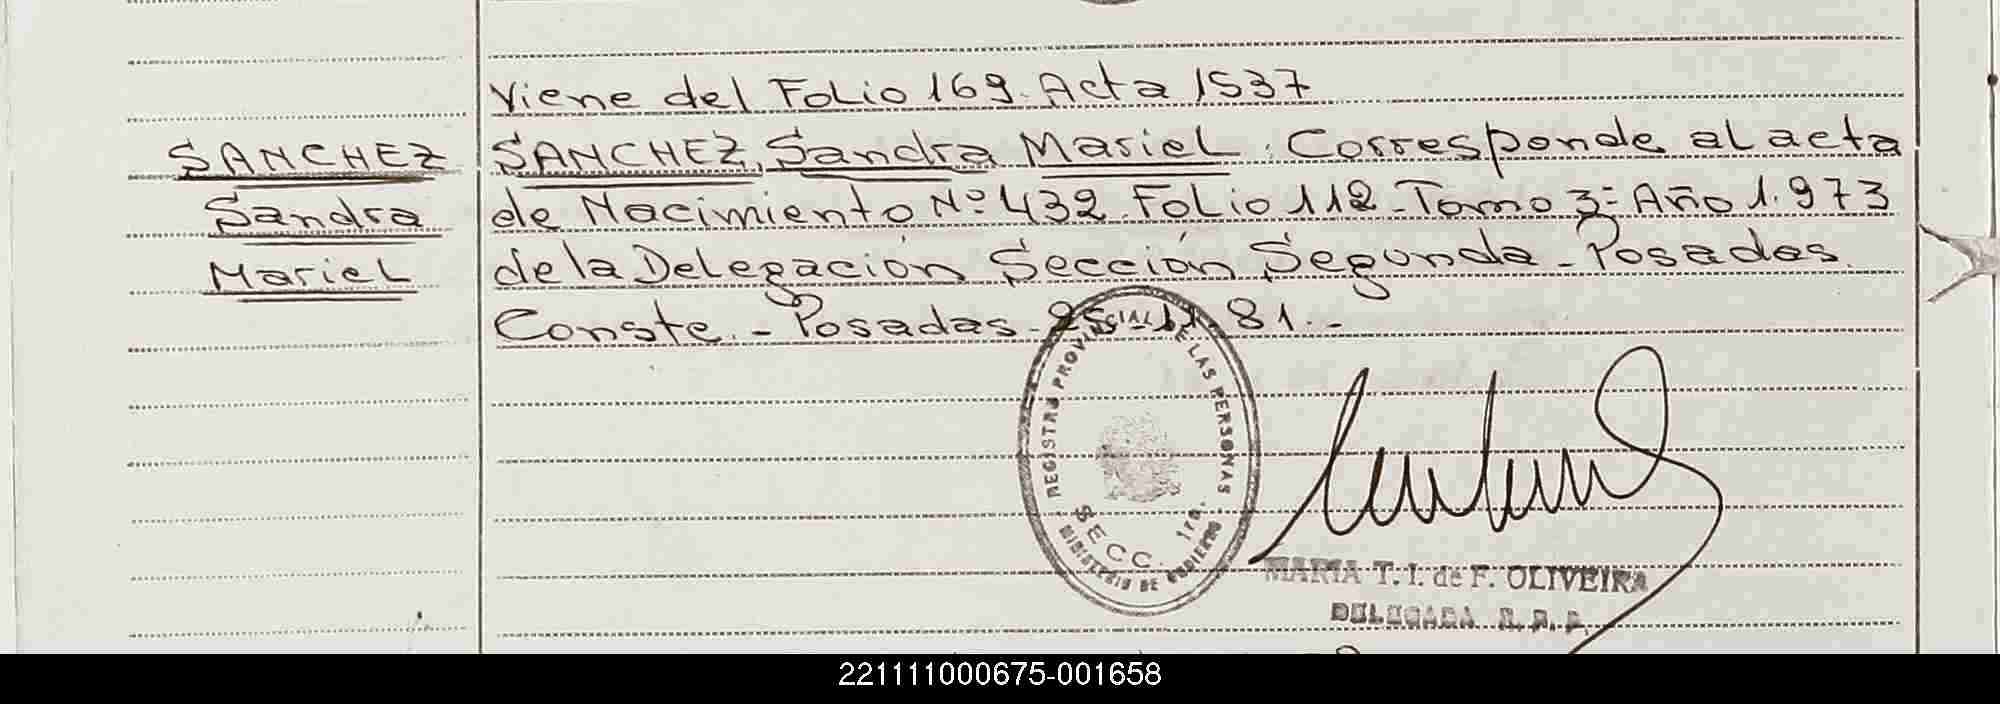 Viene del Folio 169. Acta 1537
SANCHEZ
Sandra
Mariel
SANCHEZ, Sandra Mariel. Corresponde al acta
de Nacimiento Nº 432 Folio 112 - Tomo 3º- Año 1.973
de la Delegación Sección Segunda - Posadas.
Conste. - Posadas - 25-11 81.-
REGISTRO PROVINCIAL DE LAS PERSONAS
SECC. 1ra.
MINISTERIO DE GOBIERNO
MARIA T. I. de F. OLIVEIRA
DELEGADA R. P. P.
221111000675-001658